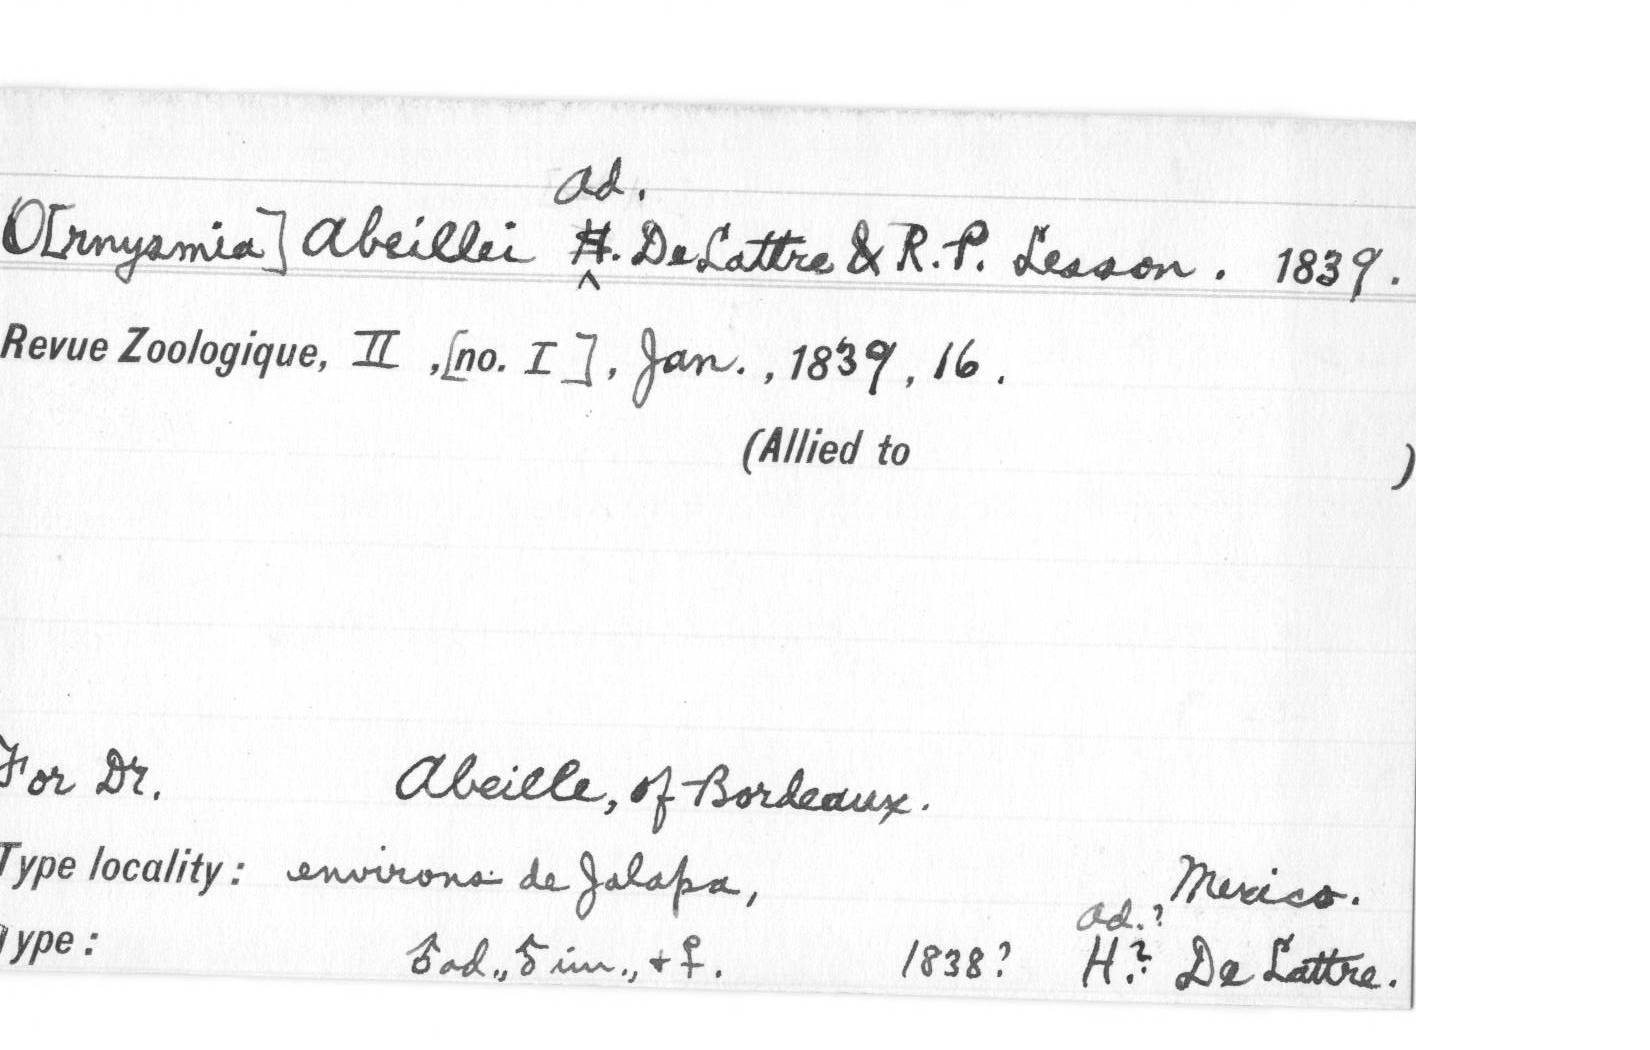 ad.
O[rnysmia] Abeillei H. DeLattre & R.P. Lesson. 1839.
^
Revue Zoologique, II, [no. I], Jan., 1839, 16.
(Allied to )
For Dr. Abeille, of Bordeaux.
Type locality: environs de Jalapa, Mexico.
ad.?
Type: ♂ ad., ♂ im., + ♀. 1838? H.? De Lattre.